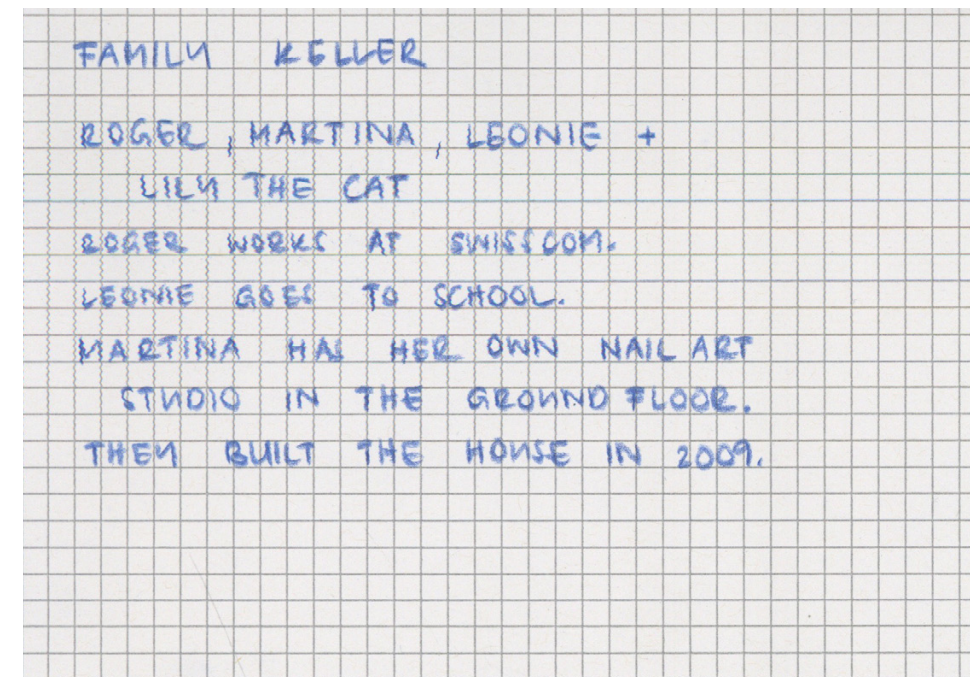 FAMILY KELLER
ROGER, MARTINA, LEONIE +
LILY THE CAT
ROGER WORKS AT SWISSCOM.
LEONIE GOES TO SCHOOL.
MARTINA HAS HER OWN NAIL ART
STUDIO IN THE GROUND FLOOR.
THEY BUILT THE HOUSE IN 2009.